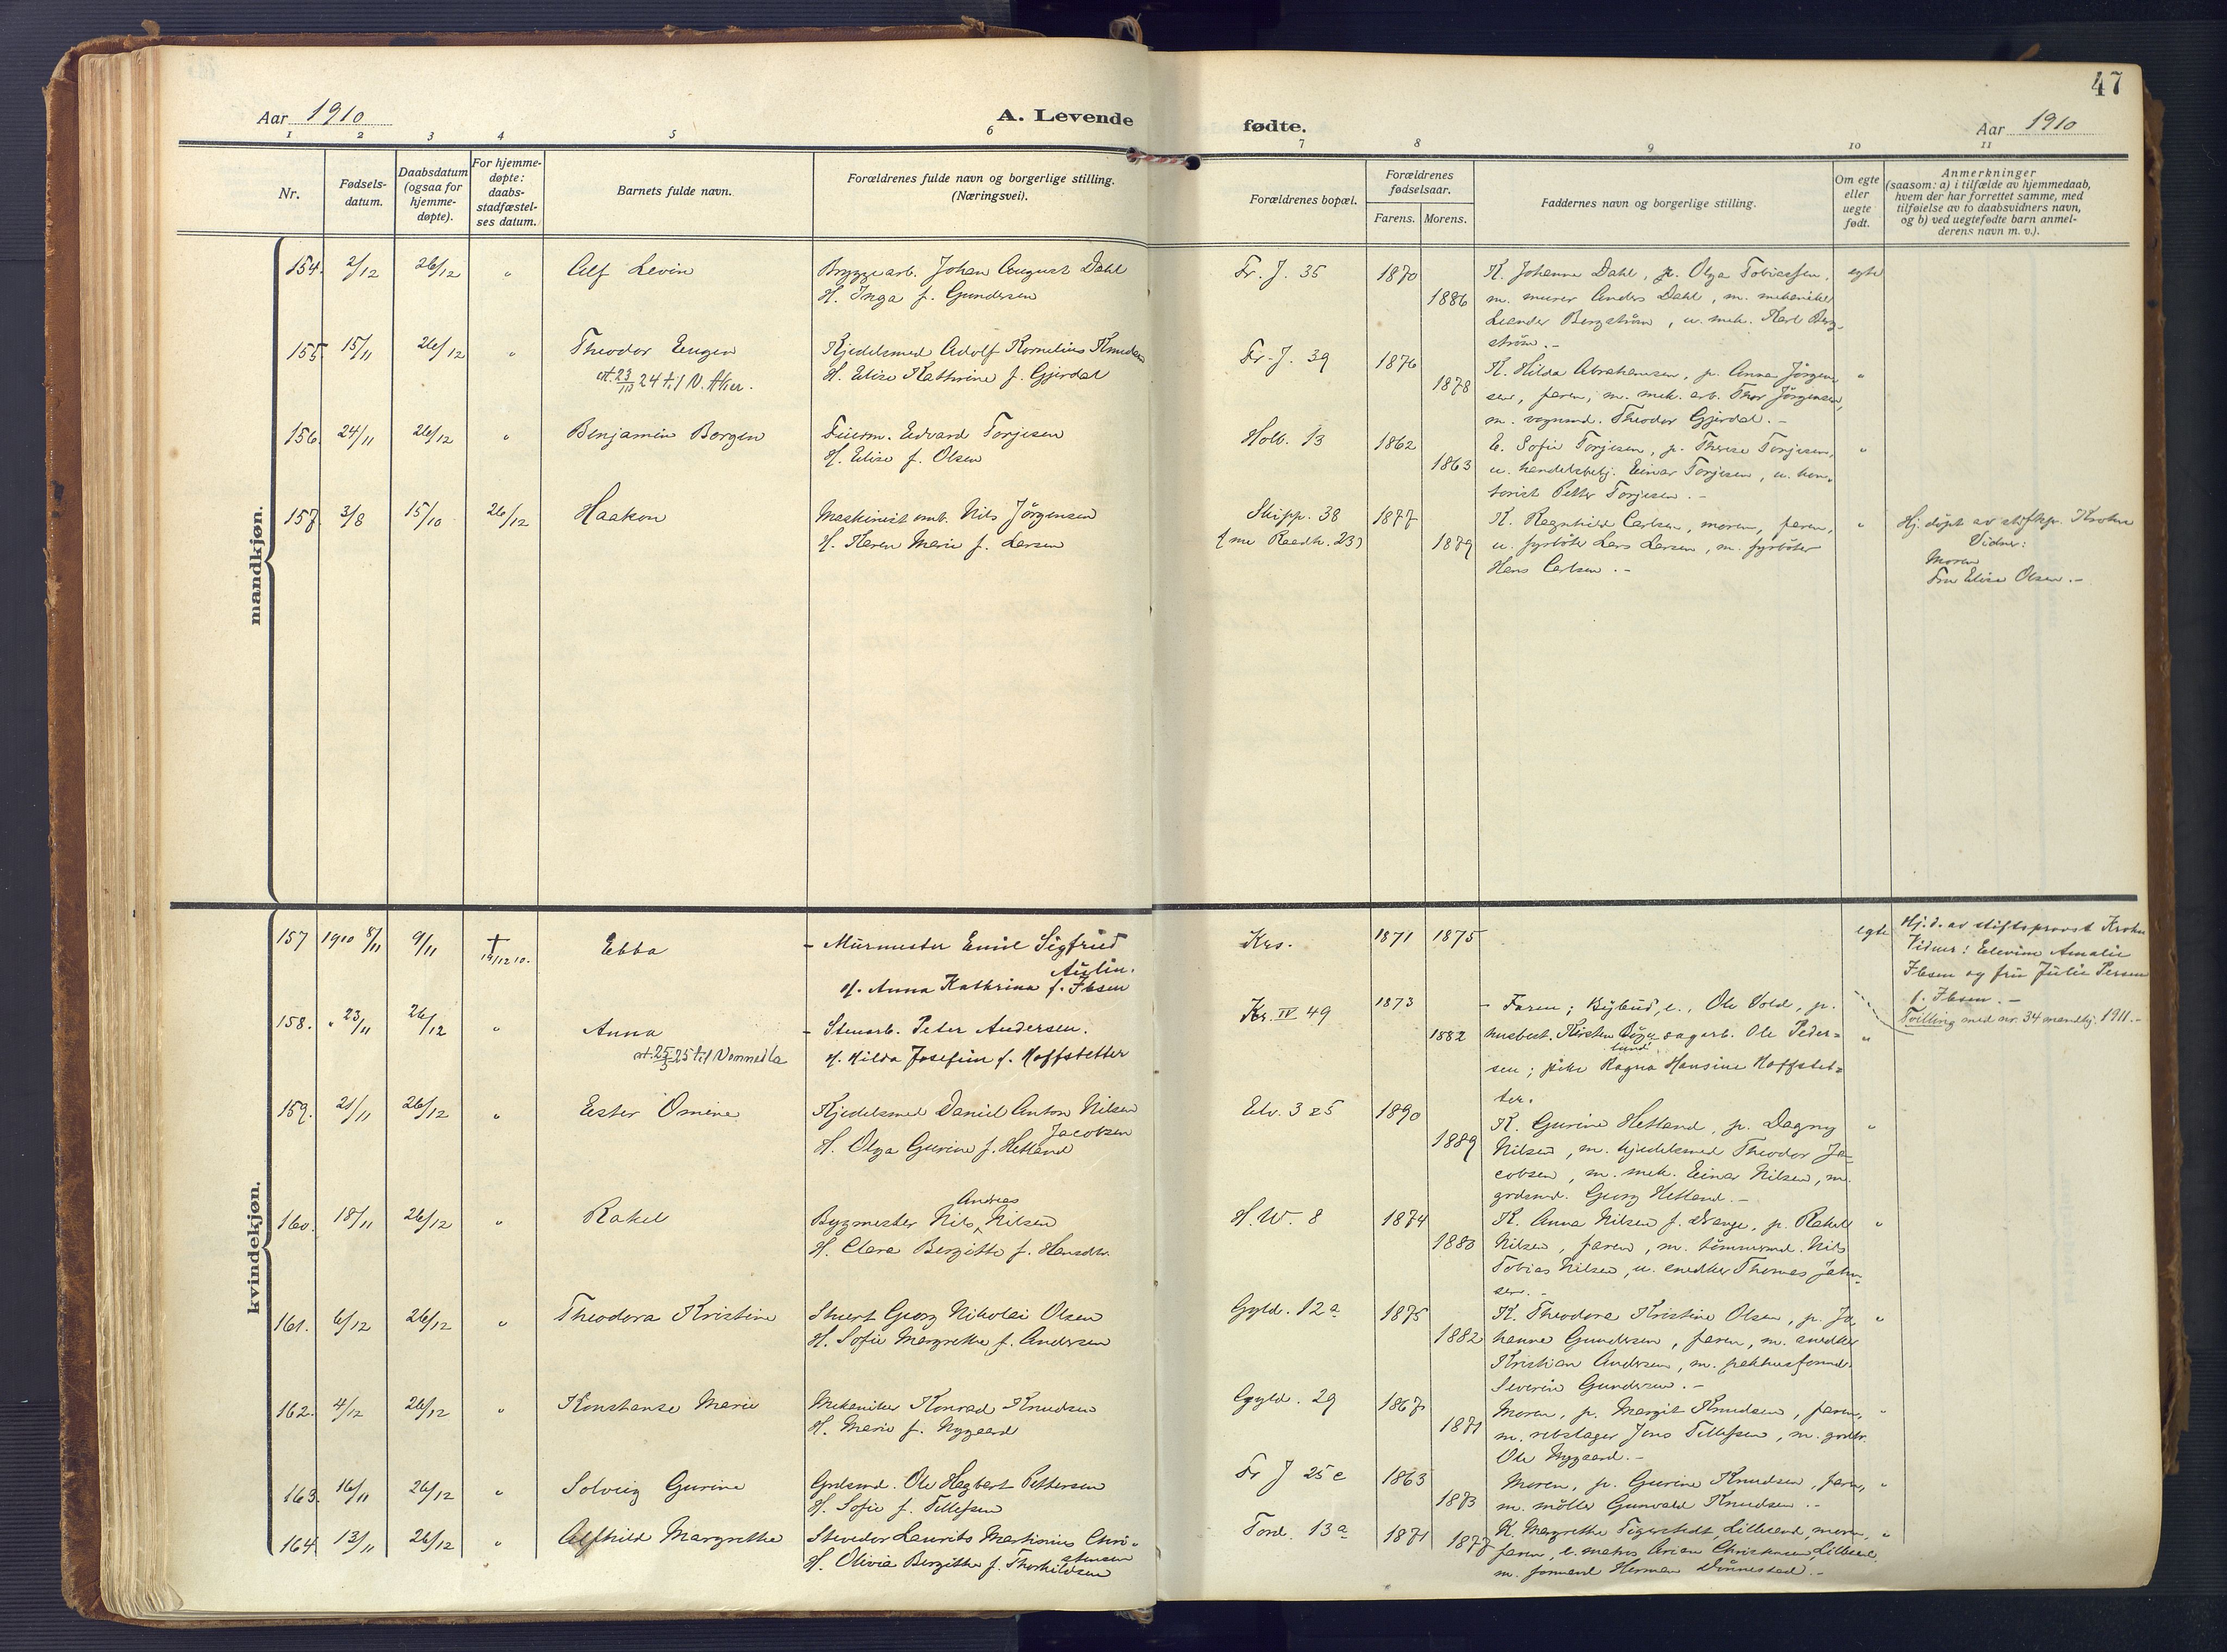 47
Aar 1910
A. Levende
fødte.
Aar 1910
1 2 3 4 5 6 7 8 9 10 11
Nr.
Fødsels-
datum.
Daabsdatum
(ogsaa for
hjemme-
døpte).
For hjemme-
døpte:
daabs-
stadfæstel-
ses datum.
Barnets fulde navn.
Forældrenes fulde navn og borgerlige stilling.
(Næringsvei).
Forældrenes bopæl.
Forældrenes
fødselsaar.
Farens. Morens.
Faddernes navn og borgerlige stilling.
Om egte
eller
uegte
født.
Anmerkninger
(saasom: a) i tilfælde av hjemmedaab,
hvem der har forrettet samme, med
tilføielse av to daabsvidners navn,
og b) ved uegtefødte barn anmel-
derens navn m. v.).
mandkjøn.
154. 2/12 26/12 " Alf Levin
Bryggearb. Johan August Dahl
H. Inga f. Gundersen
Fr. J. 35 1870 1886
K. Johanne Dahl, p. Olga Tobiassen,
m. murer Anders Dahl, m. mekaniker
Leander Bergstrøm, u. mek. Karl Berg-
strøm. -
egte
155 15/11 26/12 " Theodor Eugen
att. 23/10 24 til V. Aker.
Kjedelsmed Adolf Kornelius Knudsen
H. Elise Kathrine f. Gjerdal
Fr. J. 39 1876 1878
K. Hilda Abrahamsen, p. Anna Jörgen-
sen, faren, m. mek. arb. Thor Jörgensen,
m. vognmd. Theodor Gjerdal. -
"
156. 24/11 26/12 " Benjamin Borgen
Fuierm. Edvard Torjesen
H. Elise f. Olsen
Holb. 13 1862 1863
E. Sofie Torjesen, p. Therese Torjesen,
u. handelsbetj. Einar Torjesen, u. kon-
torist Petter Torjesen. -
"
157 3/8 15/10 26/12 Haakon
Maskinist emb. Nils Jörgensen
H. Karen Marie f. Larsen
Skipp. 38
(nu Raadh. 23)
1877 1879
K. Ragnhild Carlsen, moren, faren,
u. fyrböter Lars Larsen, m. fyrböter
Hans Carlsen. -
"
Hj. döpt av stiftsp. Krohn
Vidner:
Moren
Fru Elise Olsen. -
kvindekjøn.
157 1910 8/11 9/11 † 19/12 10. Ebba
- Murmester Emil Sigfried
Aulin.
H. Anna Kathrina f. Ibsen
Krs. 1871 1875
egte
Hj. d. av stiftsprovst Krohn
Vidner: Elevine Amalie
Ibsen og fru Julie Persen
f. Ibsen. -
158. " 23/11 26/12 " Anna
att. 25/3 25 til Vennesla
- Stenarb. Peter Andersen.
H. Hilda Josefine f. Hoffstetter
Kr. IV 49 1873 1882
- Faren; Bybud, e., Ole Vold, p.
husbest. Kirsten Böge-
lund sagarb. Ole Peder-
sen; pike Ragna Hansine Hoffstet-
ter.
"
Tvilling med nr. 34 mandkj. 1911.-
159. 21/11 26/12 " Ester Omine
Kjedelsmed Daniel Anton Nilsen
Jacobsen
H. Olga Gurine f. Hetland
Elv. 325 1890 1889
K. Gurine Hetland, p. Dagny
Nilsen, m. kjedelsmed Theodor Ja-
cobsen, m. mek. Einar Nilsen, m.
grdsmd. Georg Hetland. -
"
160. 18/11 26/12 " Rakel
Andreas
Bygmester Nils Nilsen
H. Clara Bergitte f. Hansdtr.
H. W. 8 1874 1880
K. Anna Nilsen f. Drange, p. Rakel
Nilsen, faren, m. tömmermd. Nils
Tobias Nilsen, u. snedker Thomas Jahn-
sen. -
"
161. 6/12 26/12 " Theodora Kristine
Stuert Georg Nikolai Olsen
H. Sofie Margrethe f. Andersen
Gyld. 12a 1875 1882
K. Theodora Kristine Olsen, p. Jo-
hanne Gundersen, faren, m. snedker
Kristian Andersen, m. pakhusformd.
Severin Gundersen. -
"
162. 4/12 26/12 " Konstanse Marie
Mekaniker Konrad Knudsen
H. Marie f. Nygaard
Gyld. 29 1867 1871
Moren, p. Margit Knudsen, faren,
m. rebslager Jens Tellefsen, m. grdbr.
Ole Nygaard. -
"
163. 16/11 26/12 " Solveig Gurine
Grdsmd. Ole Hagbart Pettersen
H. Sofie f. Tellefsen
Fr J 25c 1863 1873
Moren, p. Gurine Knudsen, faren,
m. möller Gunvald Knudsen. -
"
164 13/11 26/12 " Alfhild Margrethe
Stuedor Laurits Martinius Chri-
stensen
H. Olivia Bergitte f. Thorkildsen
Tord. 13a 1871 1877
K. Margrethe Tigerstedt, Lillesand, moren,
faren, e. matros Arian Christensen, Lillesand,
m. formand Herman Dönnestad. -
"